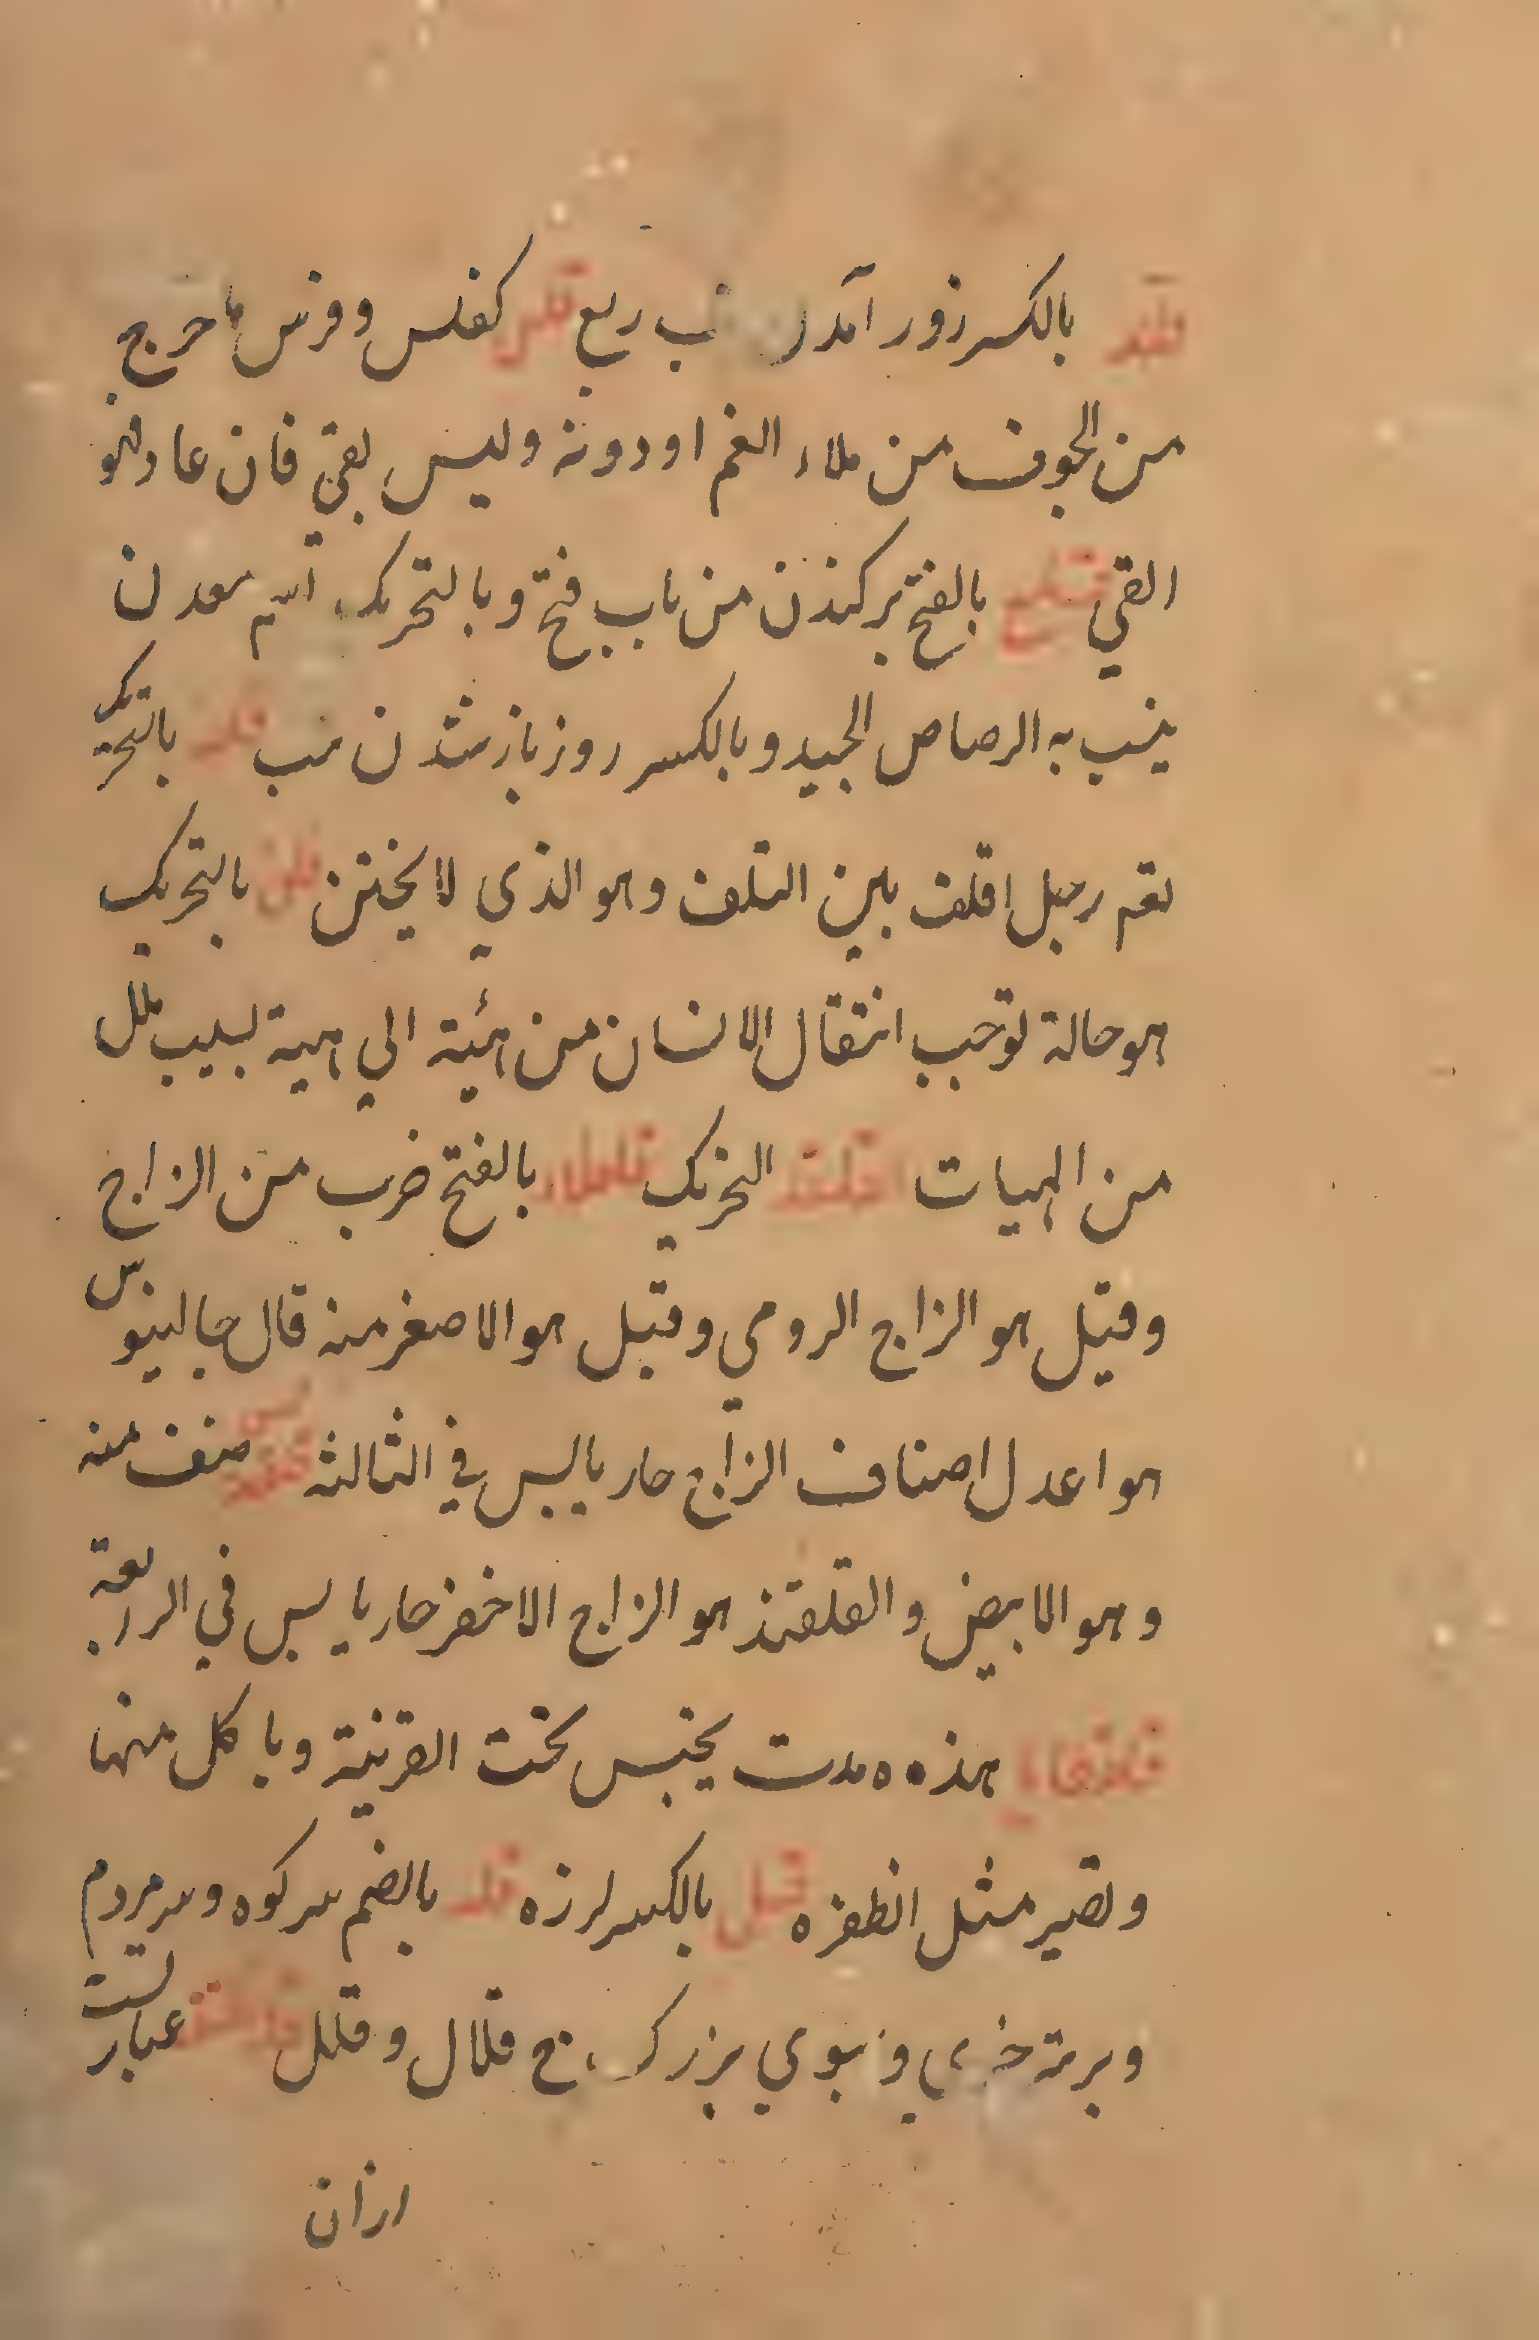 قلد بالكسر روز آمدن تب ربع قلس كفلس وفرس ما خرج
من الجوف من ملاء الفم او دونه وليس بقي فان عاد فهو
القي قلع بالفتح بركندن من باب فتح وبالتحريك اسم معدن
ينسب به الرصاص الجيد وبالكسر روز باز شدن تب قلفه بالتحريك
لغم رجل اقلف بين القلف وهو الذي لا يختن قلق بالتحريك
هو حالة توجب انتقال الانسان من هئية الي هية لسبب ملل
من الهيات القلقلة التحريك قلقطار بالفتح ضرب من الزاج
وقيل هو الزاج الرومي وقيل هو الاصغر منه قال جالينوس
هو اعدل اصناف الزاج حار يابس في الثالثة قلقديس صنف منه
وهو الابيض والقلقند هو الزاج الاخضر حار يابس في الرابعة
هذه مدت يحتبس تحت القرنية وياكل منها
وتصير مثل الظفره قل بالكسر لرزه قله بالضم سر كوه وسر مردم
وبرته خري و سبوي بزرك ج قلال وقلل عبارتست
ازان